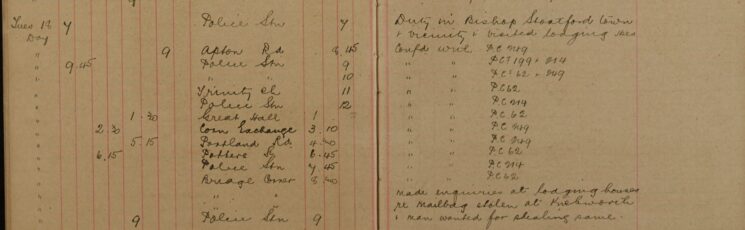 Tues 13 7 Police Stn 7 Duty in Bishop Stortford town
Day & vicinity & visited lodging hses
" 9 Apton Rd 8.45 Confd with PC 249
" 9.45 Police Stn 9 " " PCs 199 & 214
" " " 10 " " PCs 62 & 249
" Trinity Ch 11 " " PC 62
" Police Stn 12 " " PC 214
" 1.30 Great Hall 1 " " PC 62
" 2.30 Corn Exchange 3.10 " " PC 249
" 5.15 Portland Rd 4.30 " " PC 249
" 6.15 Potters St 6.45 " " PC 62
" Police Stn 7.45 " " PC 214
" Bridge Corner 8.30 " " PC 62
" " made enquiries at lodging houses
" " re mailbag stolen at Knebworth
" 9 Police Stn 9 & man wanted for stealing same.